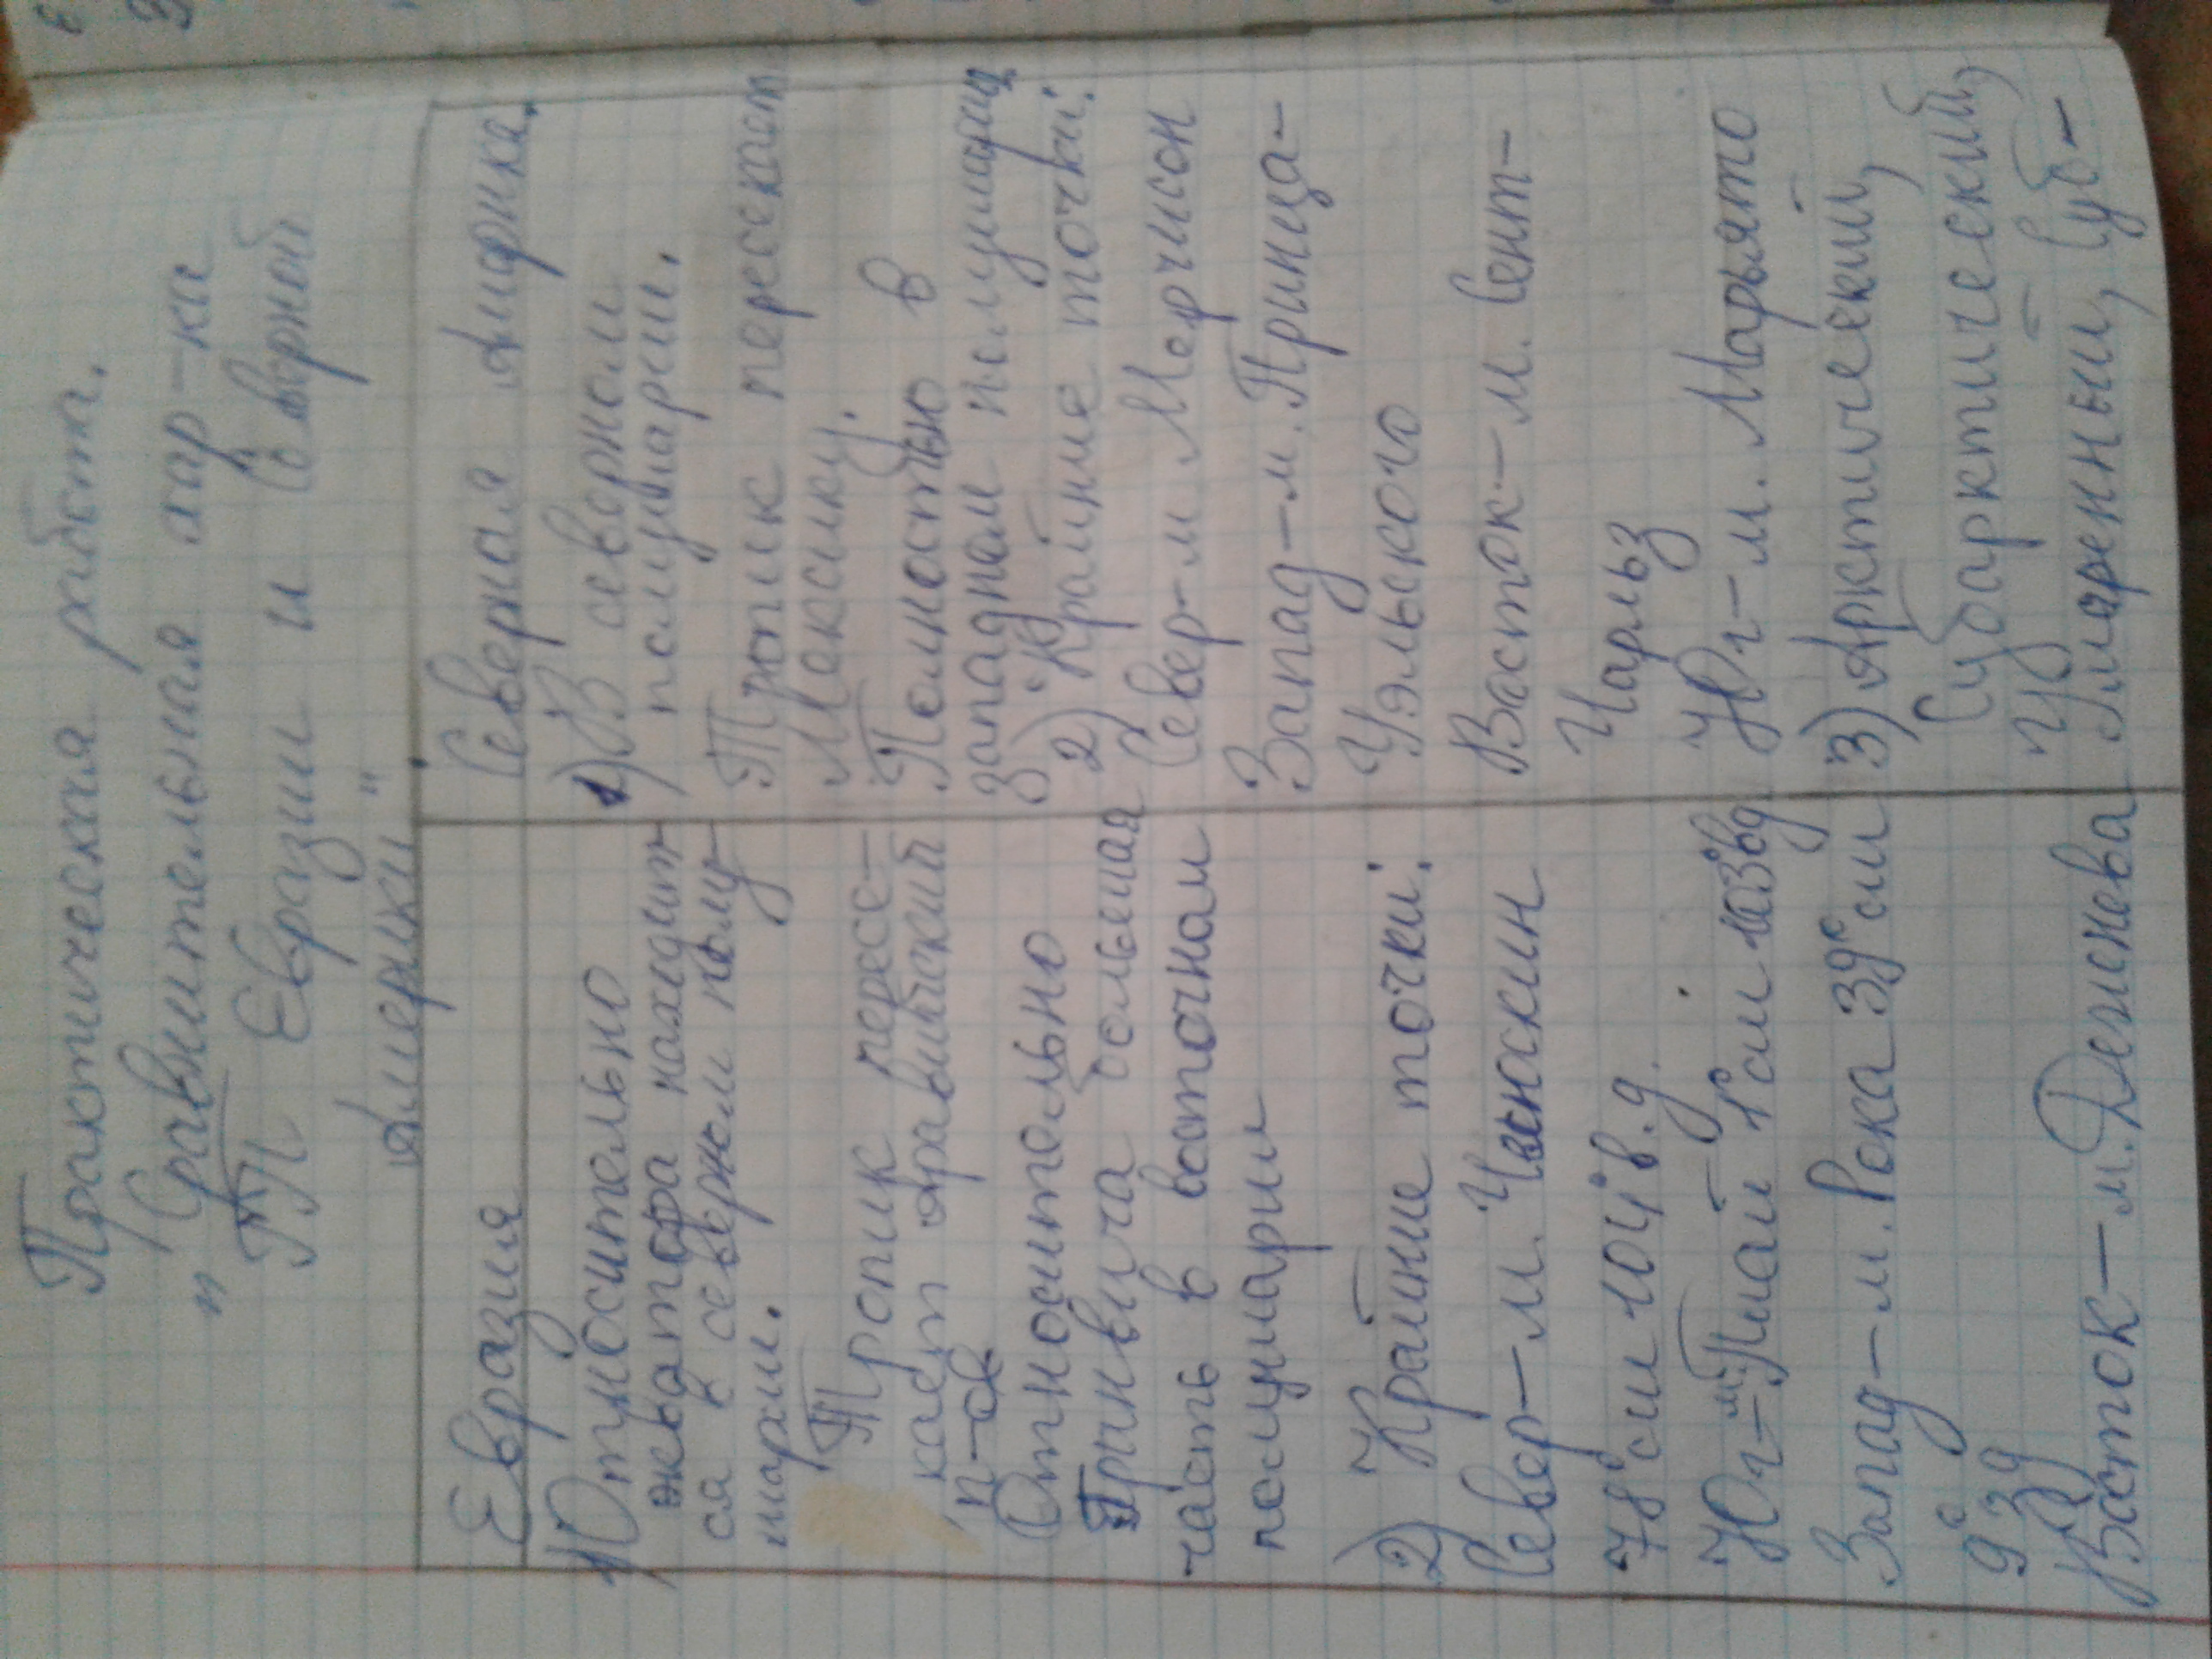 Практическая работа.
"Сравнительная хар-ка
ГП Евразии и Северной
Америки"
Евразия
1) Относительно
экватора находит-
ся в северном полу-
шарии.
Тропик пересе-
кает Аравийский
п-ов
Относительно
Гринвича большая
часть в восточном
полушарии
2) Крайние точки:
Север-м. Челюскин
78° сш 104° в.д.
Юг-м. Пиай 1° сш 103° вд
Запад-м. Рока 39° сш
9° зд
Восток-м. Дежнева
Северная Америка.
1) В северном
полушарии.
Тропик пересекает
Мексику.
Полностью в
западном полушарии
2) Крайние точки:
Север-м Мерчисон
Запад-м. Принца-
Уэльского
Восток-м. Сент-
Чарльз
Юг-м. Марьято
3) Арктический,
Субарктический,
Умеренный, Суб-